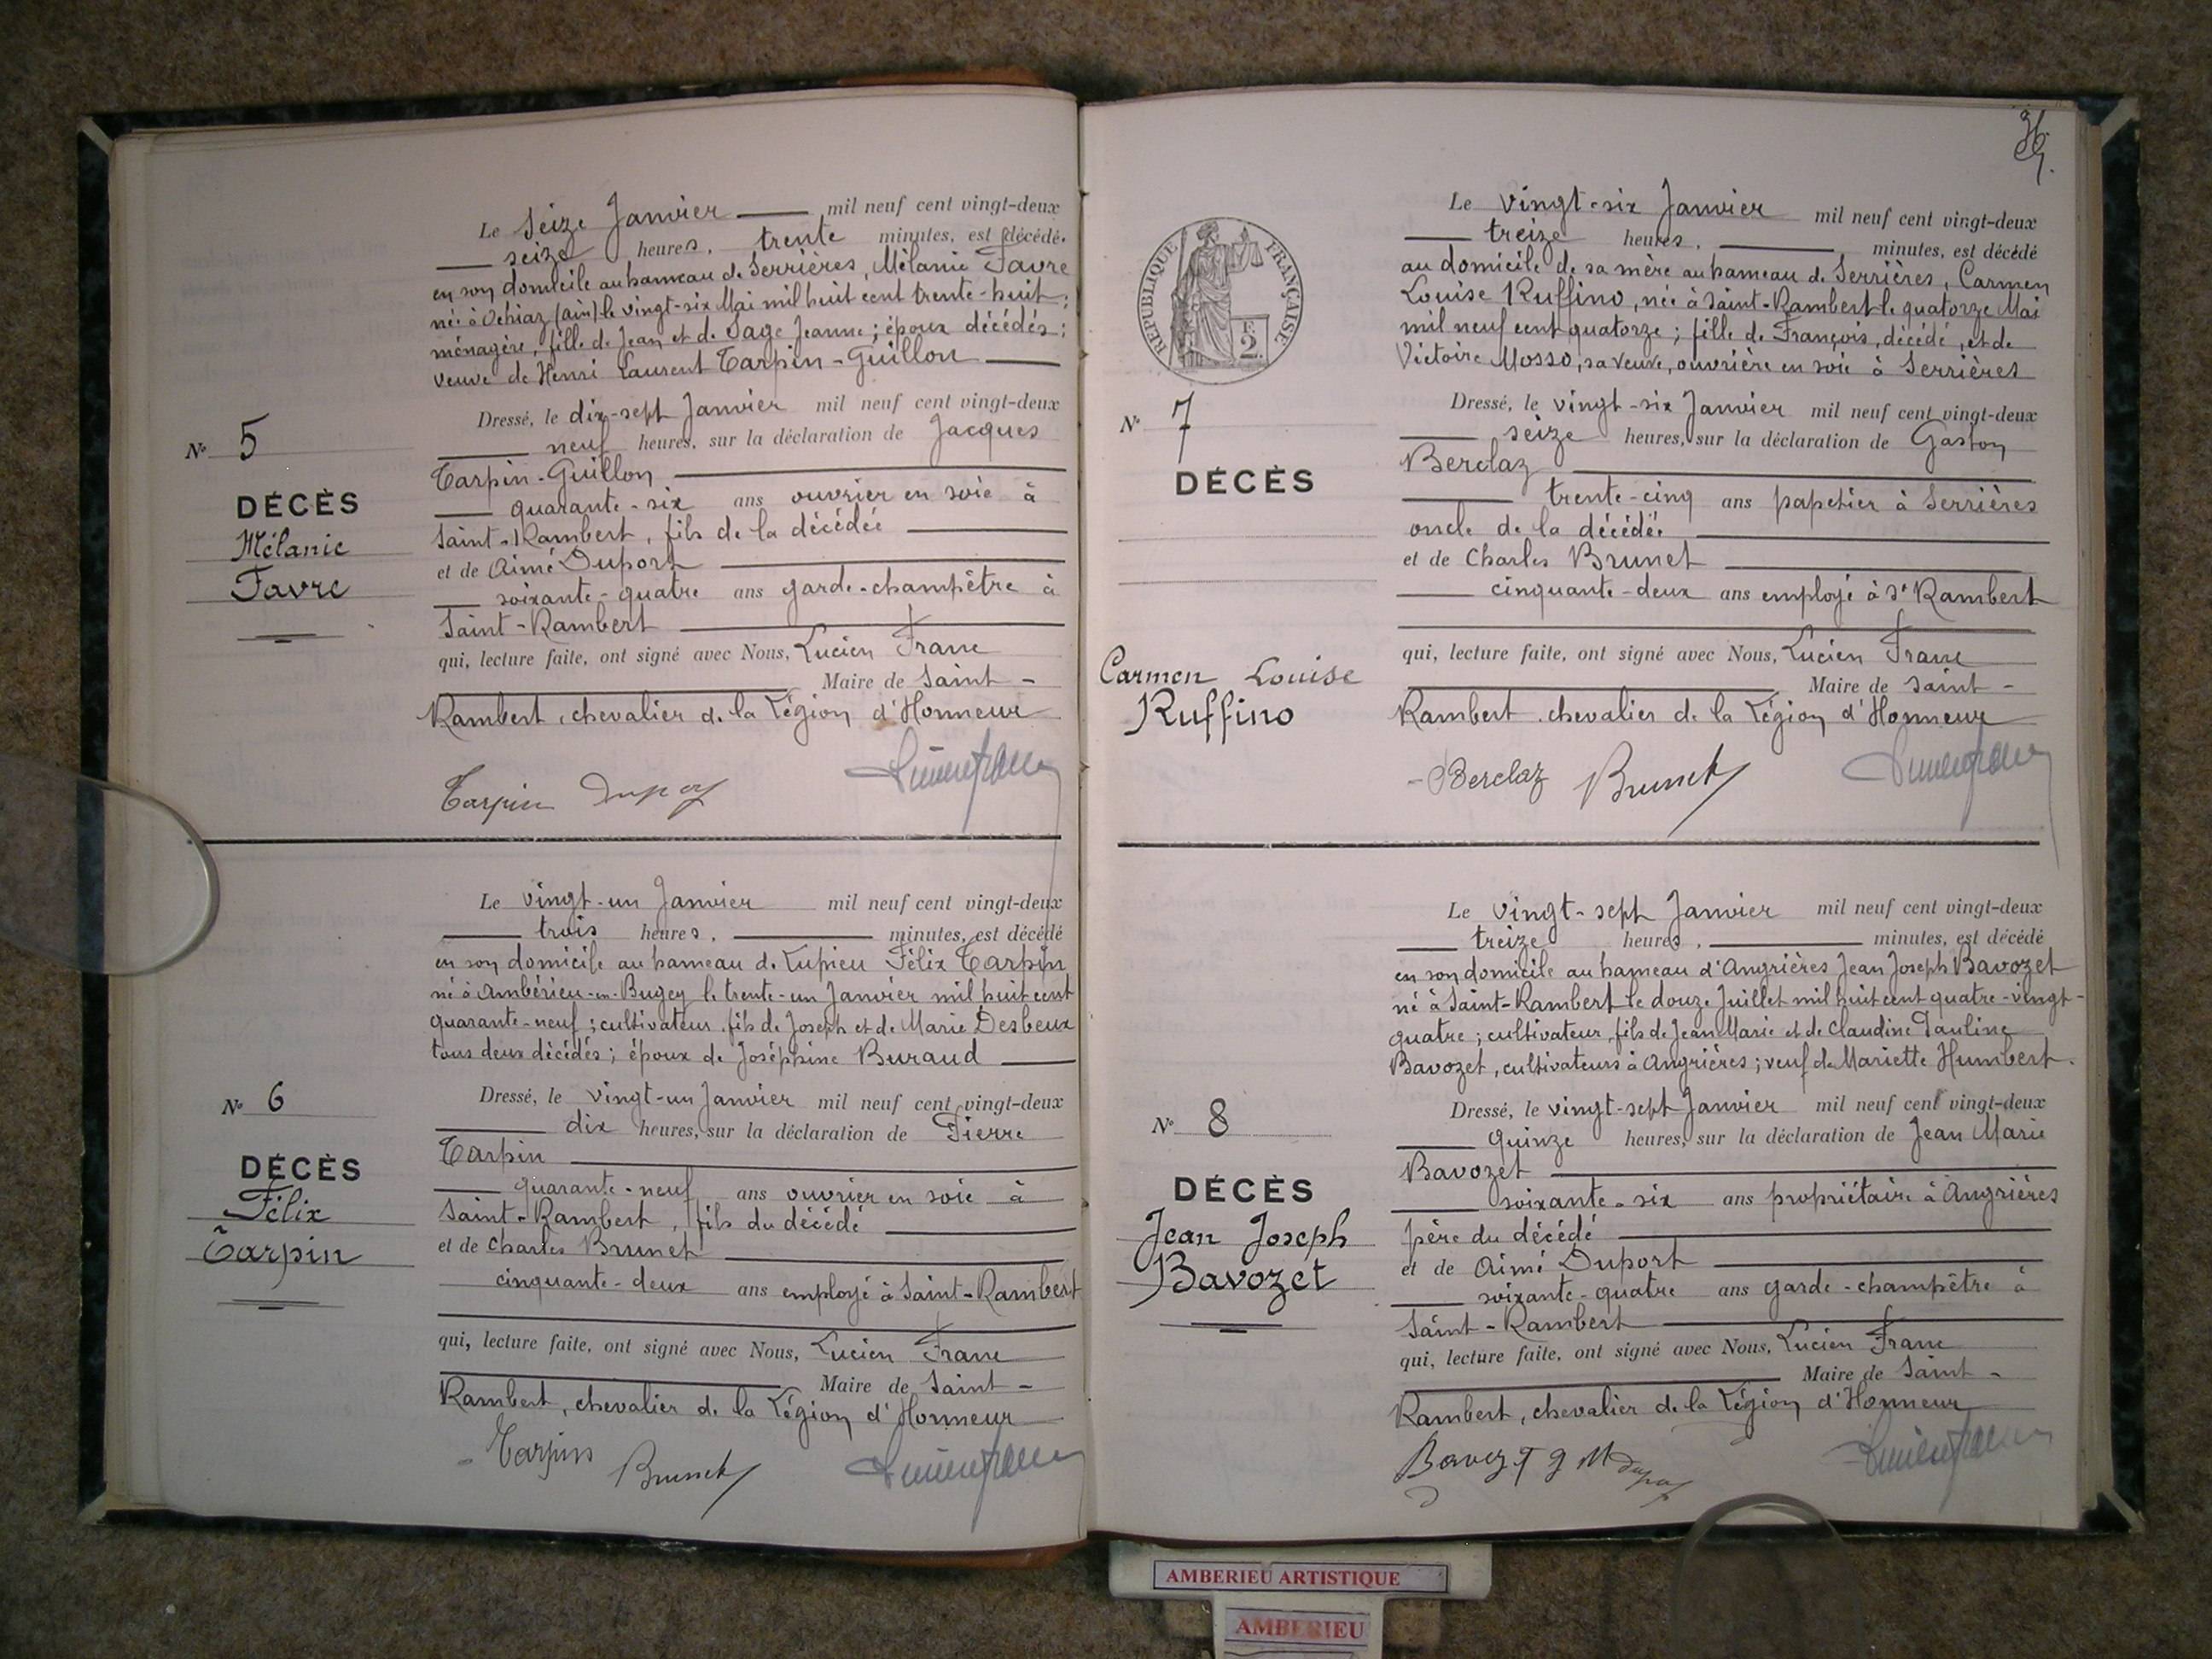 Le Seize Janvier mil neuf cent vingt-deux
seize heures, trente minutes, est décédée
en son domicile au hameau de Serrières, Mélanie Favre
née à Ochiaz (ain) le vingt-six Mai mil huit cent trente-huit;
ménagère, fille de Jean et de Sage Jeanne; époux décédés;
veuve de Henri Laurent Tarpin-Guillon
Dressé, le dix-sept Janvier mil neuf cent vingt-deux
neuf heures, sur la déclaration de Jacques
Tarpin-Guillon
quarante-six ans ouvrier en soie à
Saint-Rambert, fils de la décédée
et de Aimé Duport
soixante-quatre ans garde-champêtre à
Saint-Rambert
qui, lecture faite, ont signé avec Nous, Lucien Franc
Maire de Saint-
Rambert, chevalier de la Légion d'Honneur
Tarpin Duport
No 5
DÉCÈS
Mélanie
Favre
Le vingt-un Janvier mil neuf cent vingt-deux
trois heures, minutes, est décédé
en son domicile au hameau de Lupieu Félix Tarpin
né à Ambérieu-en-Bugey le trente-un Janvier mil huit cent
quarante-neuf; cultivateur, fils de Joseph et de Marie Desbeux
tous deux décédés; époux de Joséphine Buraud
Dressé, le vingt-un Janvier mil neuf cent vingt-deux
dix heures, sur la déclaration de Pierre
Tarpin
quarante-neuf ans ouvrier en soie à
Saint-Rambert, fils du décédé
et de Charles Brunet
cinquante-deux ans employé à Saint-Rambert
qui, lecture faite, ont signé avec Nous, Lucien Franc
Maire de Saint-
Rambert, chevalier de la Légion d'Honneur
Tarpin Brunet
No 6
DÉCÈS
Félix
Tarpin
Le vingt-six Janvier mil neuf cent vingt-deux
treize heures, minutes, est décédé
au domicile de sa mère au hameau de Serrières, Carmen
Louise Ruffino, née à Saint-Rambert le quatorze Mai
mil neuf cent quatorze; fille de François, décédé, et de
Victoire Mosso, sa veuve, ouvrière en soie à Serrières
Dressé, le vingt-six Janvier mil neuf cent vingt-deux
seize heures, sur la déclaration de Gaston
Berclaz
trente-cinq ans papetier à Serrières
oncle de la décédée
et de Charles Brunet
cinquante-deux ans employé à St Rambert
qui, lecture faite, ont signé avec Nous, Lucien Franc
Maire de Saint-
Rambert, chevalier de la Légion d'Honneur
Berclaz Brunet
RÉPUBLIQUE FRANÇAISE
F.
2
No 7
DÉCÈS
Carmen Louise
Ruffino
Le vingt-sept Janvier mil neuf cent vingt-deux
treize heures, minutes, est décédé
en son domicile au hameau d'Angrières Jean Joseph Bavozet
né à Saint-Rambert le douze Juillet mil huit cent quatre-vingt-
quatre; cultivateur, fils de Jean Marie et de Claudine Pauline
Bavozet, cultivateurs à Angrières; veuf de Mariette Humbert.
Dressé, le vingt-sept Janvier mil neuf cent vingt-deux
quinze heures, sur la déclaration de Jean Marie
Bavozet
soixante-six ans propriétaire à Angrières
père du décédé
et de Aimé Duport
soixante-quatre ans garde-champêtre à
Saint-Rambert
qui, lecture faite, ont signé avec Nous, Lucien Franc
Maire de Saint-
Rambert, chevalier de la Légion d'Honneur
No 8
DÉCÈS
Jean Joseph
Bavozet
AMBERIEU ARTISTIQUE
AMBERIEU